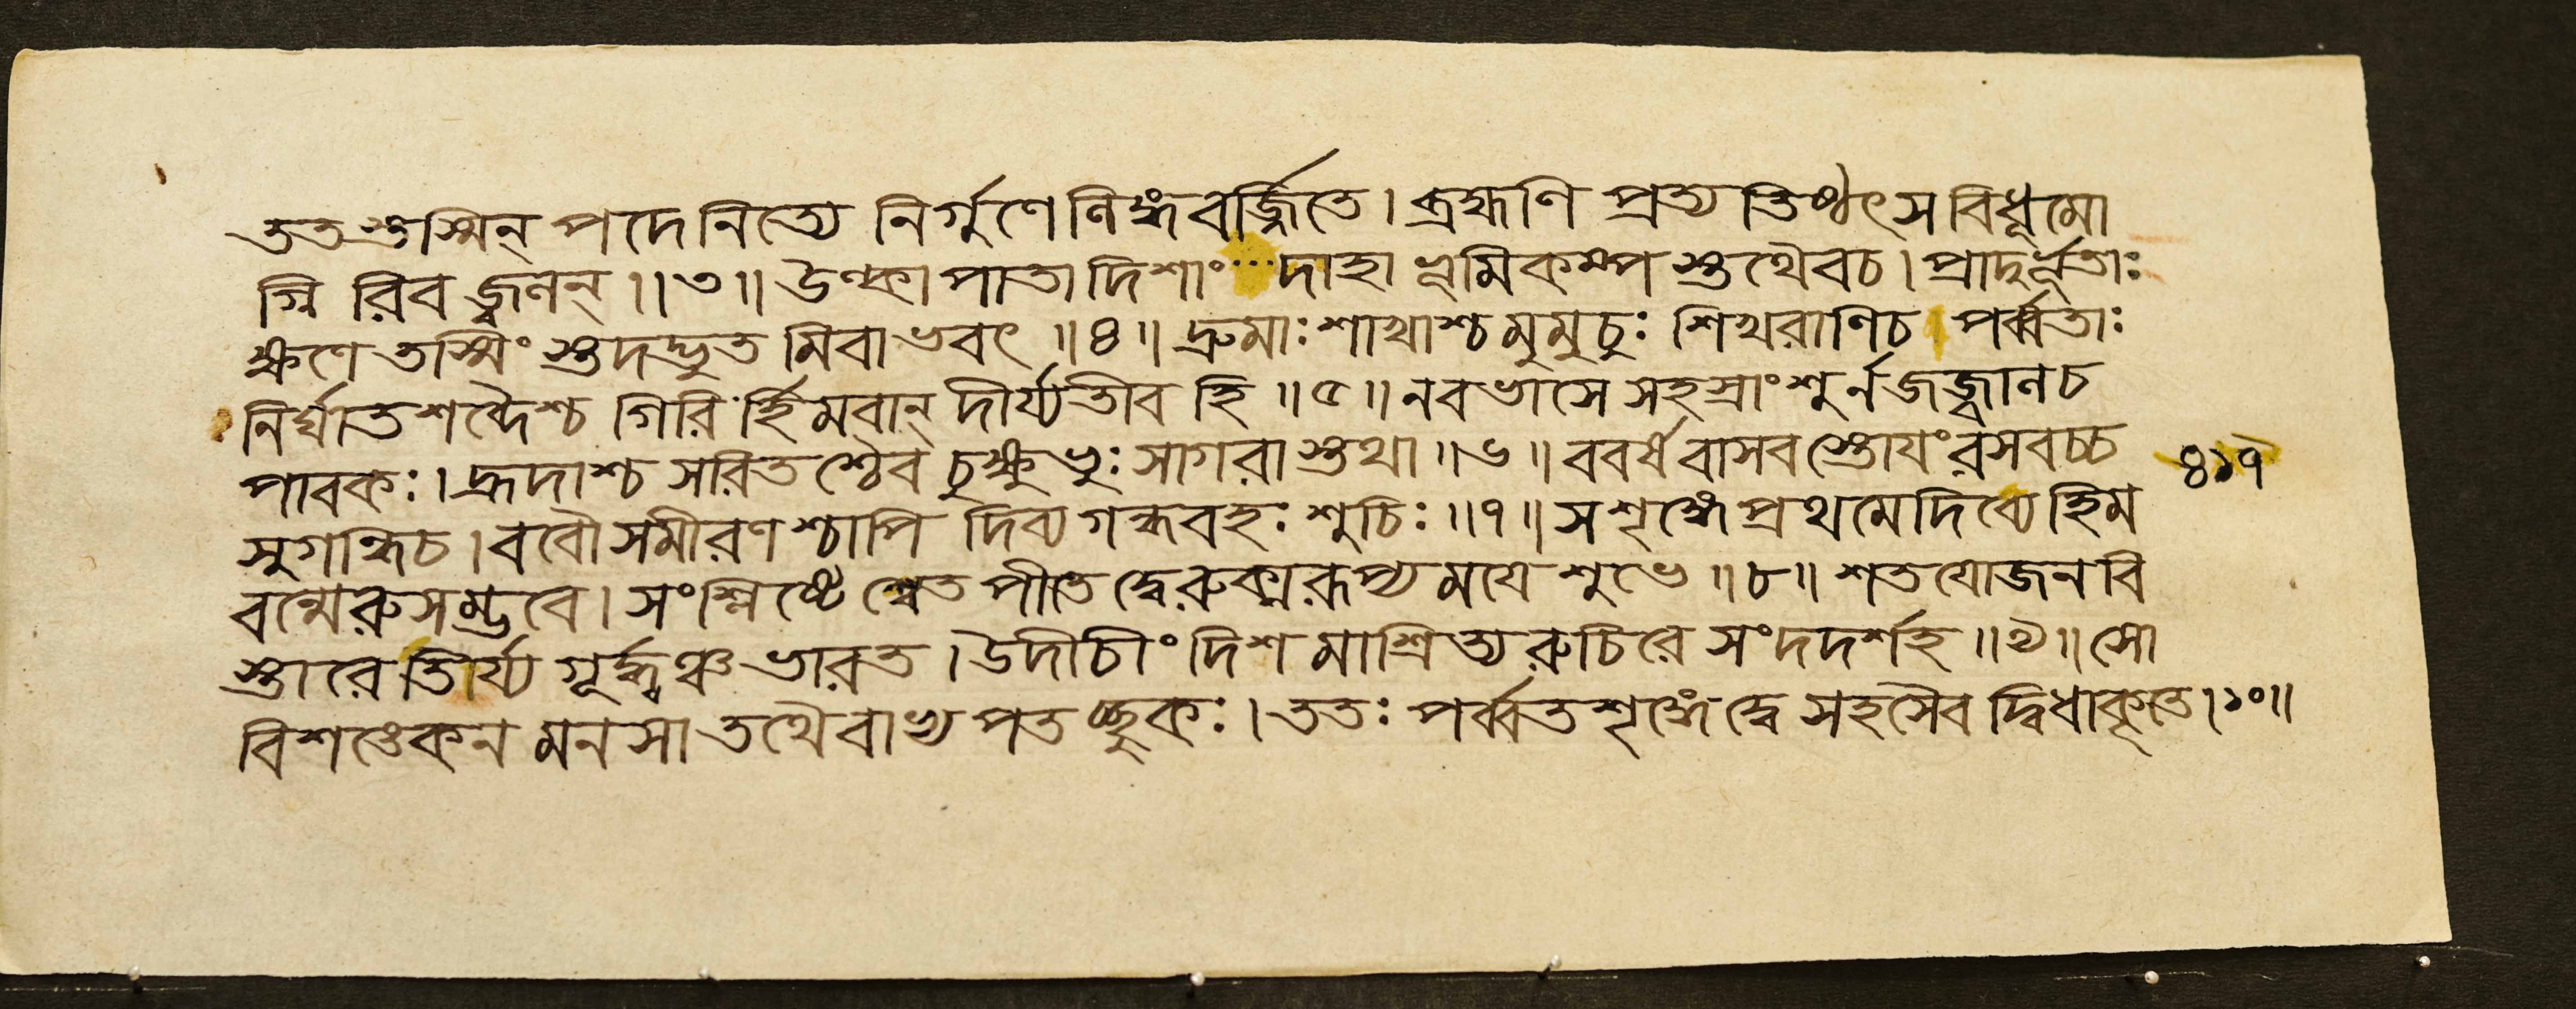 ততস্তস্মিন্ পদে নিত্যে নির্গুণে লিঙ্গবর্জ্জিতে। ব্রহ্মণি প্রত্যতিষ্ঠৎ স বিধূমো
গ্নিরিব জ্বলন্॥৩॥ উল্কাপাতা দিশাং দাহা ভূমিকম্পস্তথৈবচ। প্রাদুর্ভূতাঃ
ক্ষণে তস্মিংস্তদদ্ভুতমিবাভবৎ॥৪॥ দ্রুমাঃ শাখাশ্চ মুমুচুঃ শিখরাণিচ পর্ব্বতাঃ
নির্ঘাতশব্দৈশ্চ গিরির্হিমবান্ দীর্য্যতীব হি॥৫॥ ন বভাসে সহস্রাংশুর্ন জজ্বাল চ
পাবকঃ। হ্রদাশ্চ সরিতশ্চৈব চুক্ষুভুঃ সাগরাস্তথা॥৬॥ ববর্ষ বাসবস্তোয়ং রসবচ্চ
সুগন্ধিচ। ববৌ সমীরণশ্চাপি দিব্যগন্ধবহঃ শুচিঃ॥৭॥ স শৃঙ্গে প্রথমে দিব্যে হিম
বন্মেরুসম্ভবে। সংশ্লিষ্টে শ্বেতপীতে দ্বে রুক্মরূপ্যময়ে শুভে॥৮॥ শতযোজনবি
স্তারে তির্য্যগূর্দ্ধঞ্চ ভারত। উদীচীং দিশমাশ্রিত্য রুচিরে সংদদর্শহ॥৯॥ সো
বিশঙ্কেন মনসা তথৈবাভ্যপতচ্ছুকঃ। ততঃ পর্ব্বতশৃঙ্গে দ্বে সহসৈব দ্বিধাকৃতে।১০॥
৪১৭